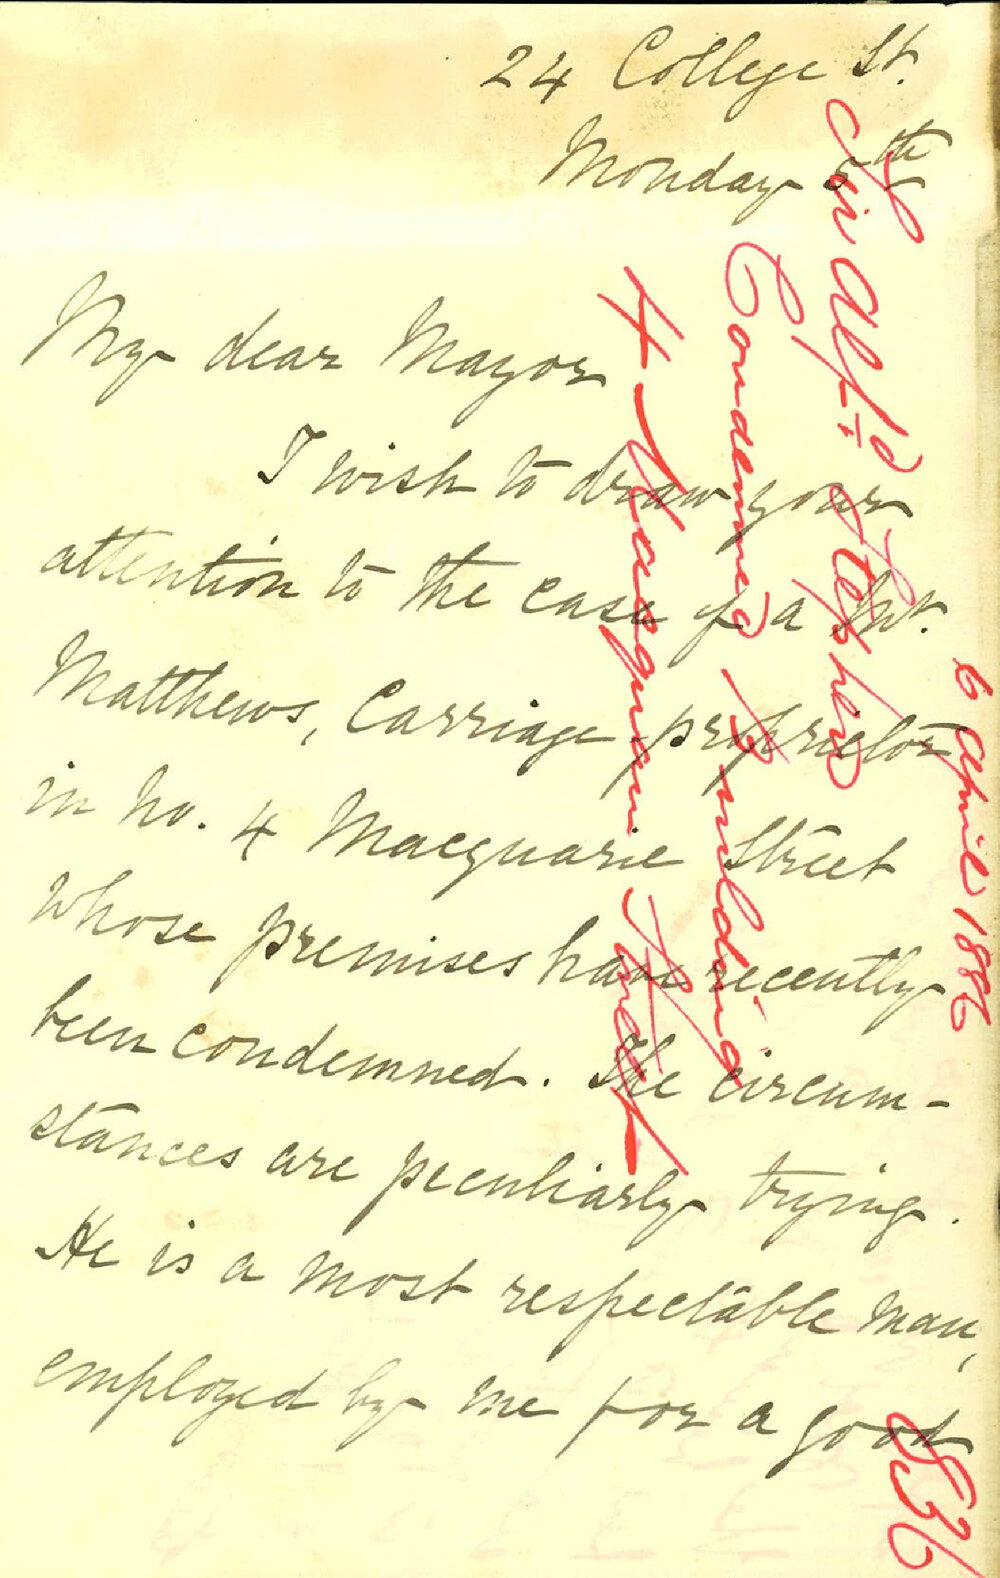 24 College St.
Monday 5th
My dear Mayor
I wish to draw your
attention to the case of a Mr.
Matthews, Carriage proprietor
in No. 4 Macquarie Street
whose premises have recently
been condemned. The circum-
stances are peculiarly trying.
He is a most respectable man,
employed by me for a good
Sir Alfd Stephen
Condemned Building
4 Macquarie Street
6 April 1886
836